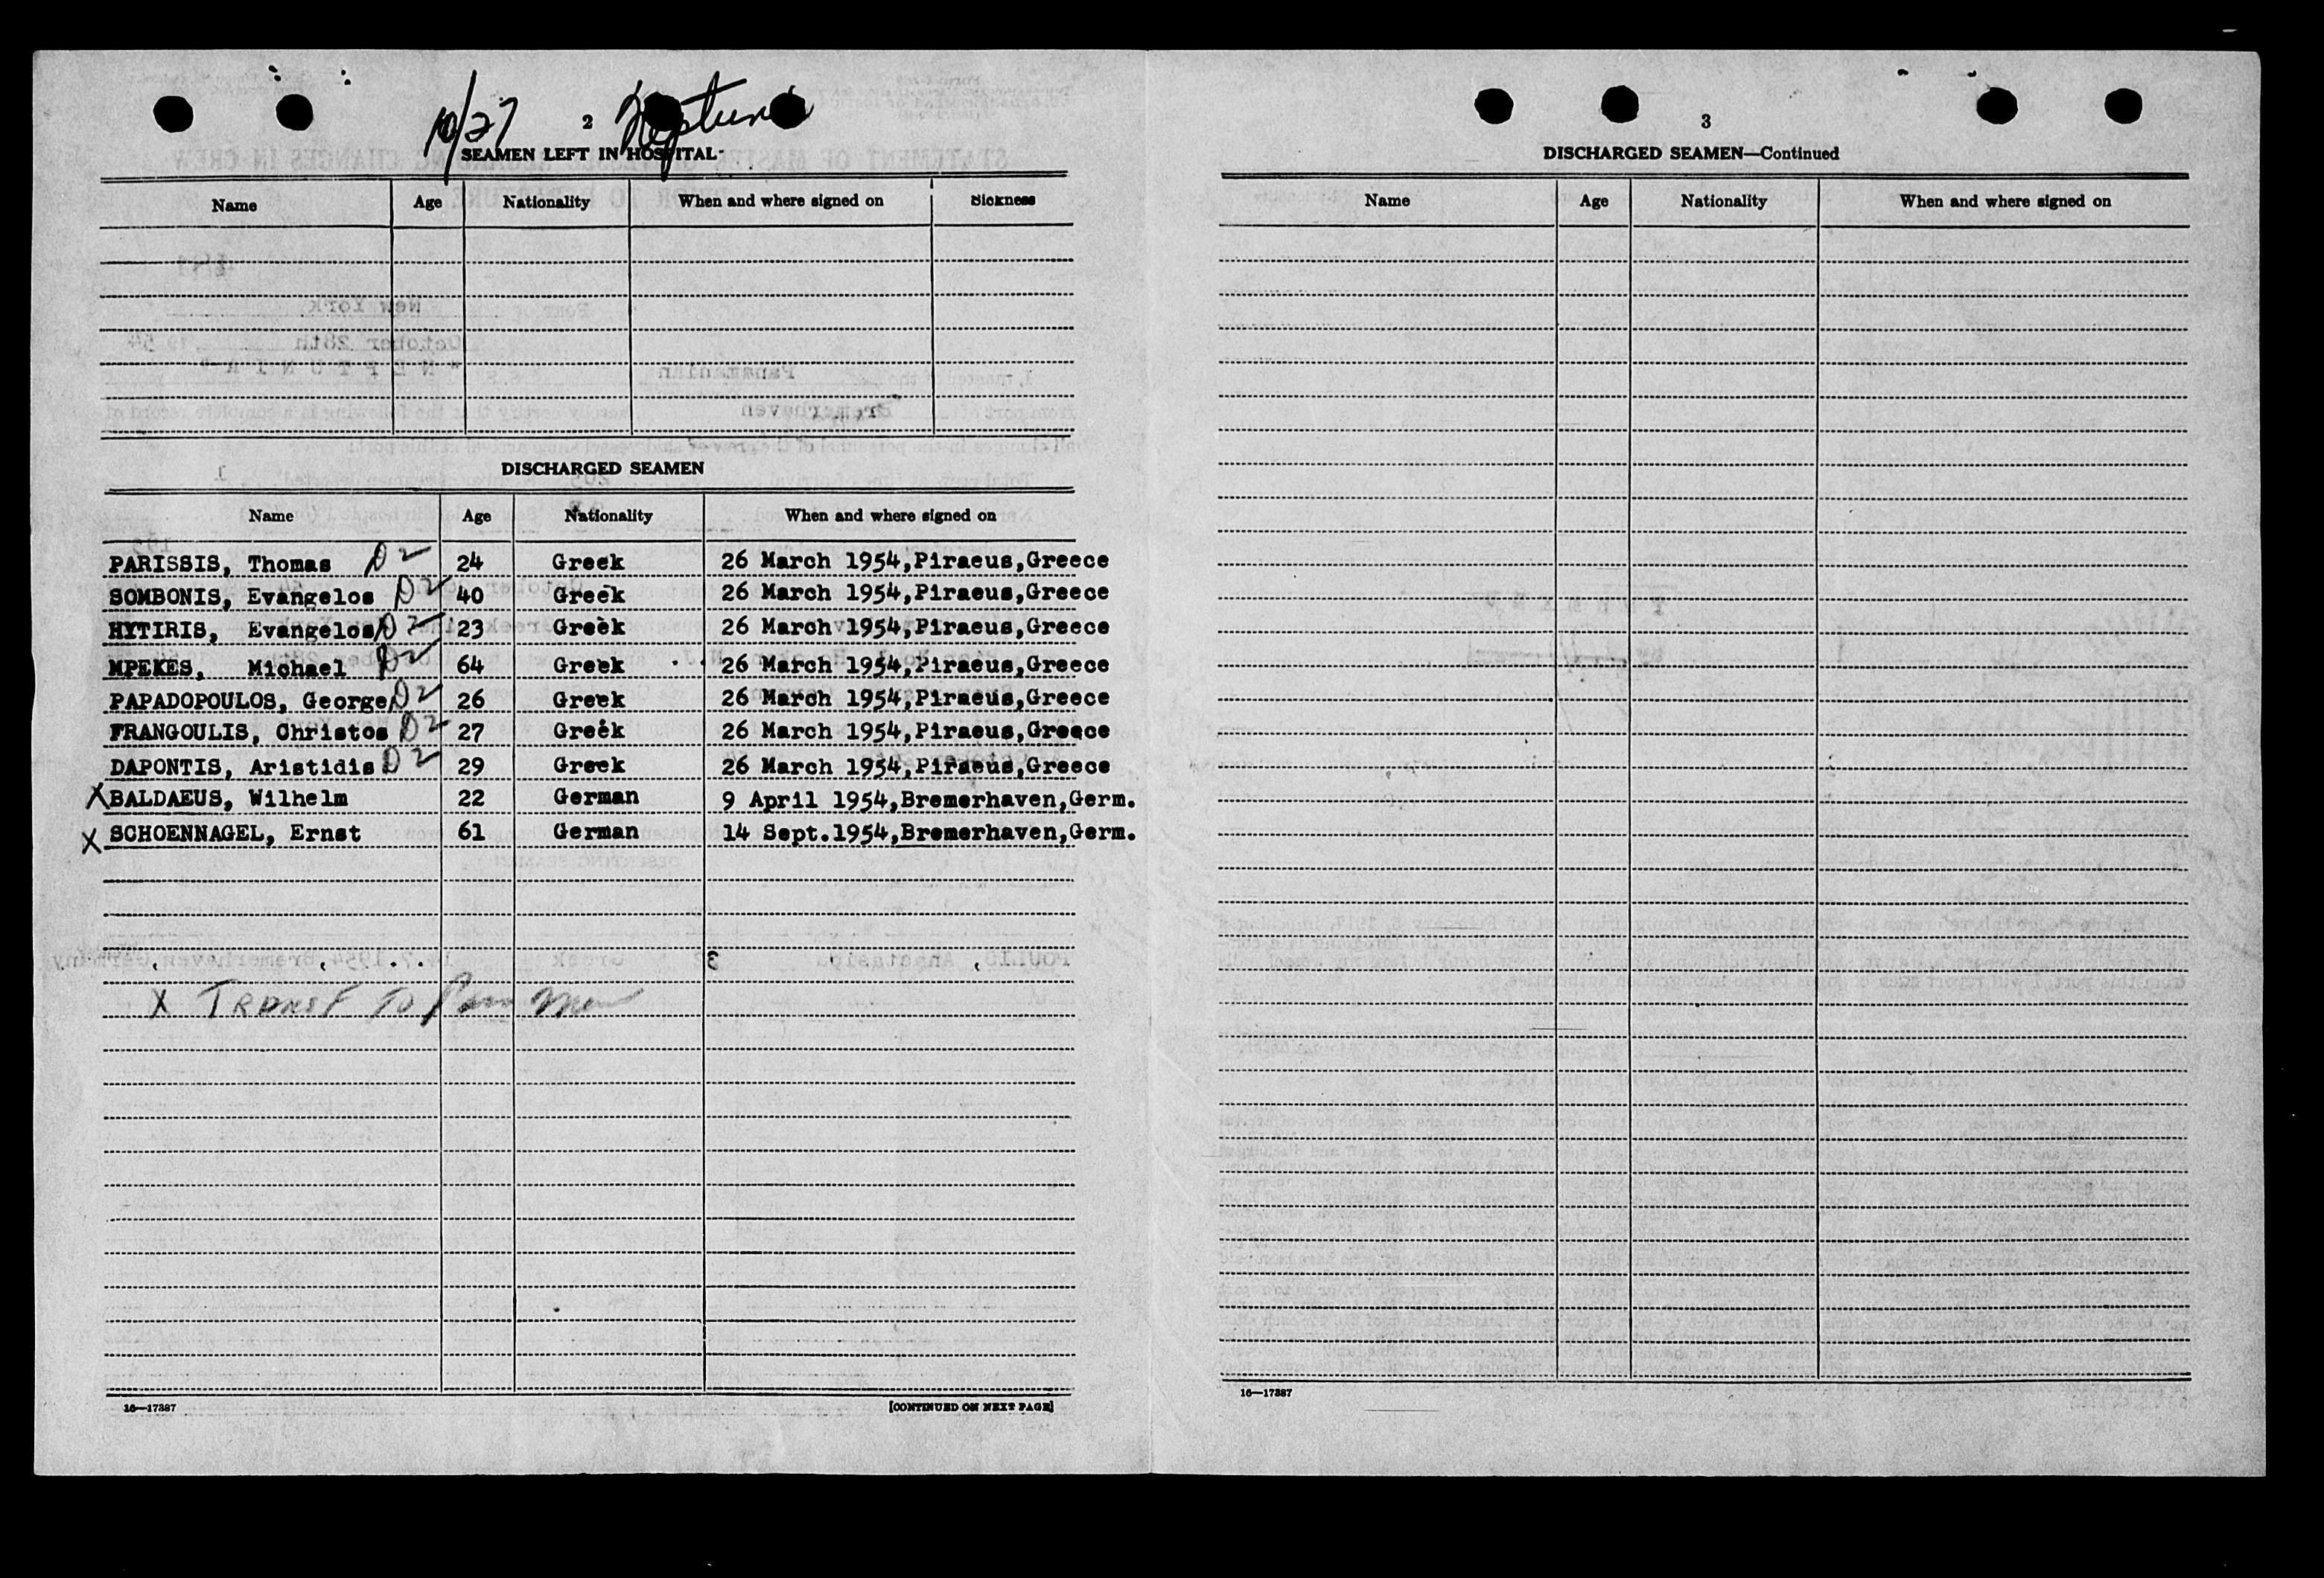 10/27 2 Neptunia
SEAMEN LEFT IN HOSPITAL
Name Age Nationality When and where signed on Sickness
DISCHARGED SEAMEN
Name Age Nationality When and where signed on
PARISSIS, Thomas D2 24 Greek 26 March 1954,Piraeus,Greece
SOMBONIS, Evangelos D2 40 Greek 26 March 1954,Piraeus,Greece
HYTIRIS, Evangelos D2 23 Greek 26 March 1954,Piraeus,Greece
MPEKES, Michael D2 64 Greek 26 March 1954,Piraeus,Greece
PAPADOPOULOS, George D2 26 Greek 26 March 1954,Piraeus,Greece
FRANGOULIS, Christos D2 27 Greek 26 March 1954,Piraeus,Greece
DAPONTIS, Aristidis D2 29 Greek 26 March 1954,Piraeus,Greece
X BALDAEUS, Wilhelm 22 German 9 April 1954,Bremerhaven,Germ.
X SCHOENNAGEL, Ernst 61 German 14 Sept.1954,Bremerhaven,Germ.
X TRANSF TO
16—17387 [CONTINUED ON NEXT PAGE]
3
DISCHARGED SEAMEN—Continued
Name Age Nationality When and where signed on
16—17387